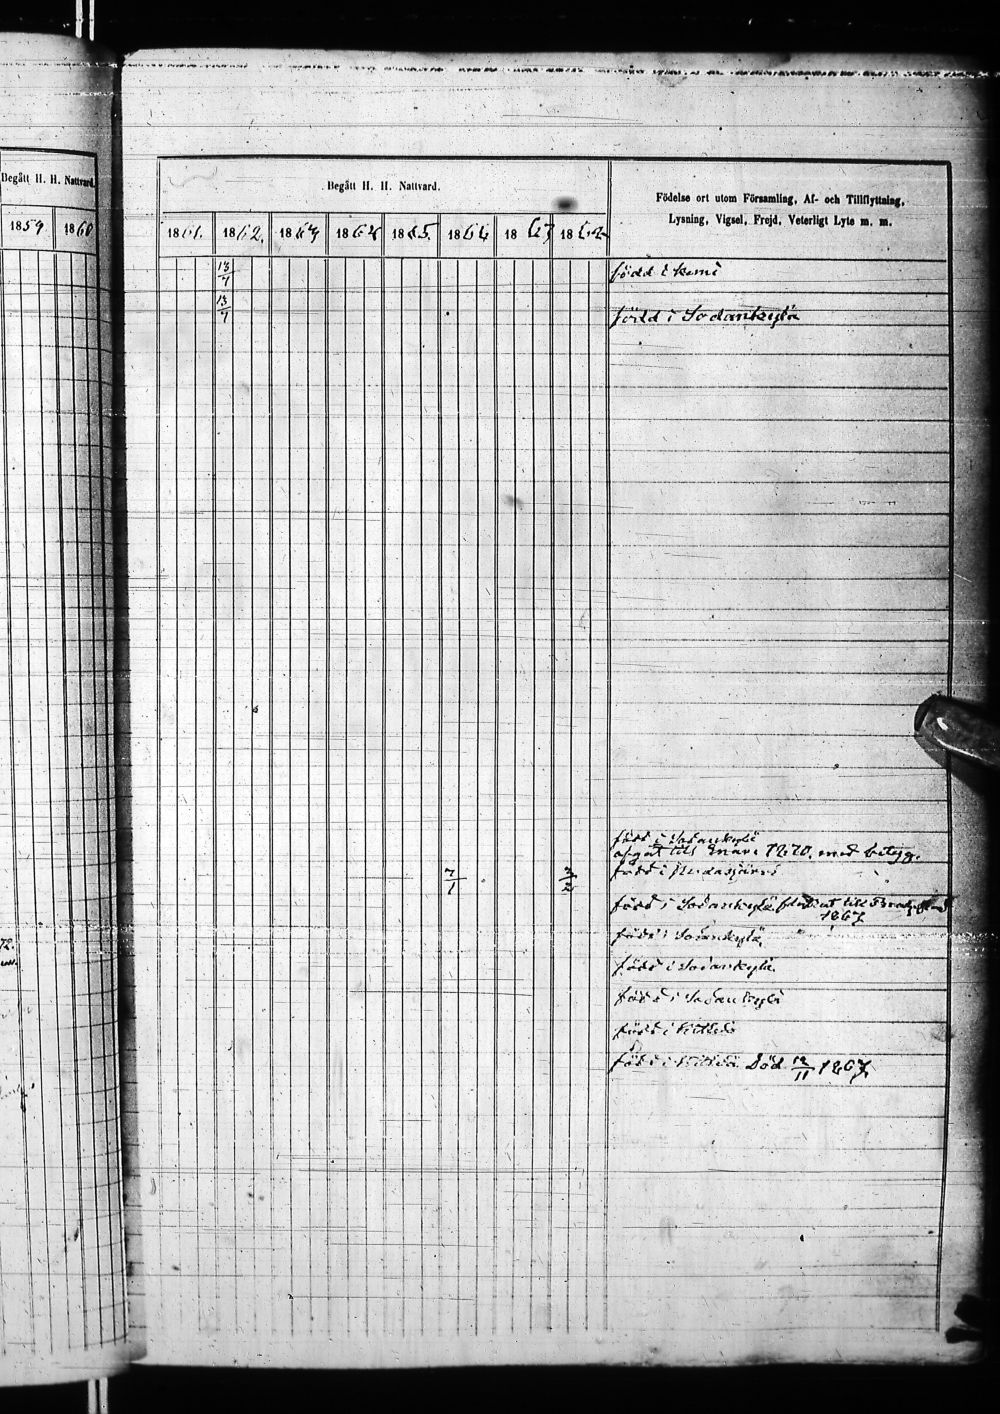 Begått H. H. Nattvard.
1859 1860
72.
Begått H. H. Nattvard.
Födelse ort utom Församling, Af- och Tillflyttning,
Lysning, Vigsel, Frejd, Veterligt Lyte m. m.
1861. 1862. 1863 1864 1865. 1866 1867 1868
13/7 född i Kemi
13/7
född i Sodankylä
född i Sodankylä
afgåt till Enare 1870. med betyg.
född i
7/1
född i Sodankylä till
1867
född i Sodankylä
född i Sodankylä
född i Sodankylä
född i Kittilä
född i Kittilä Död 12/11 1867.